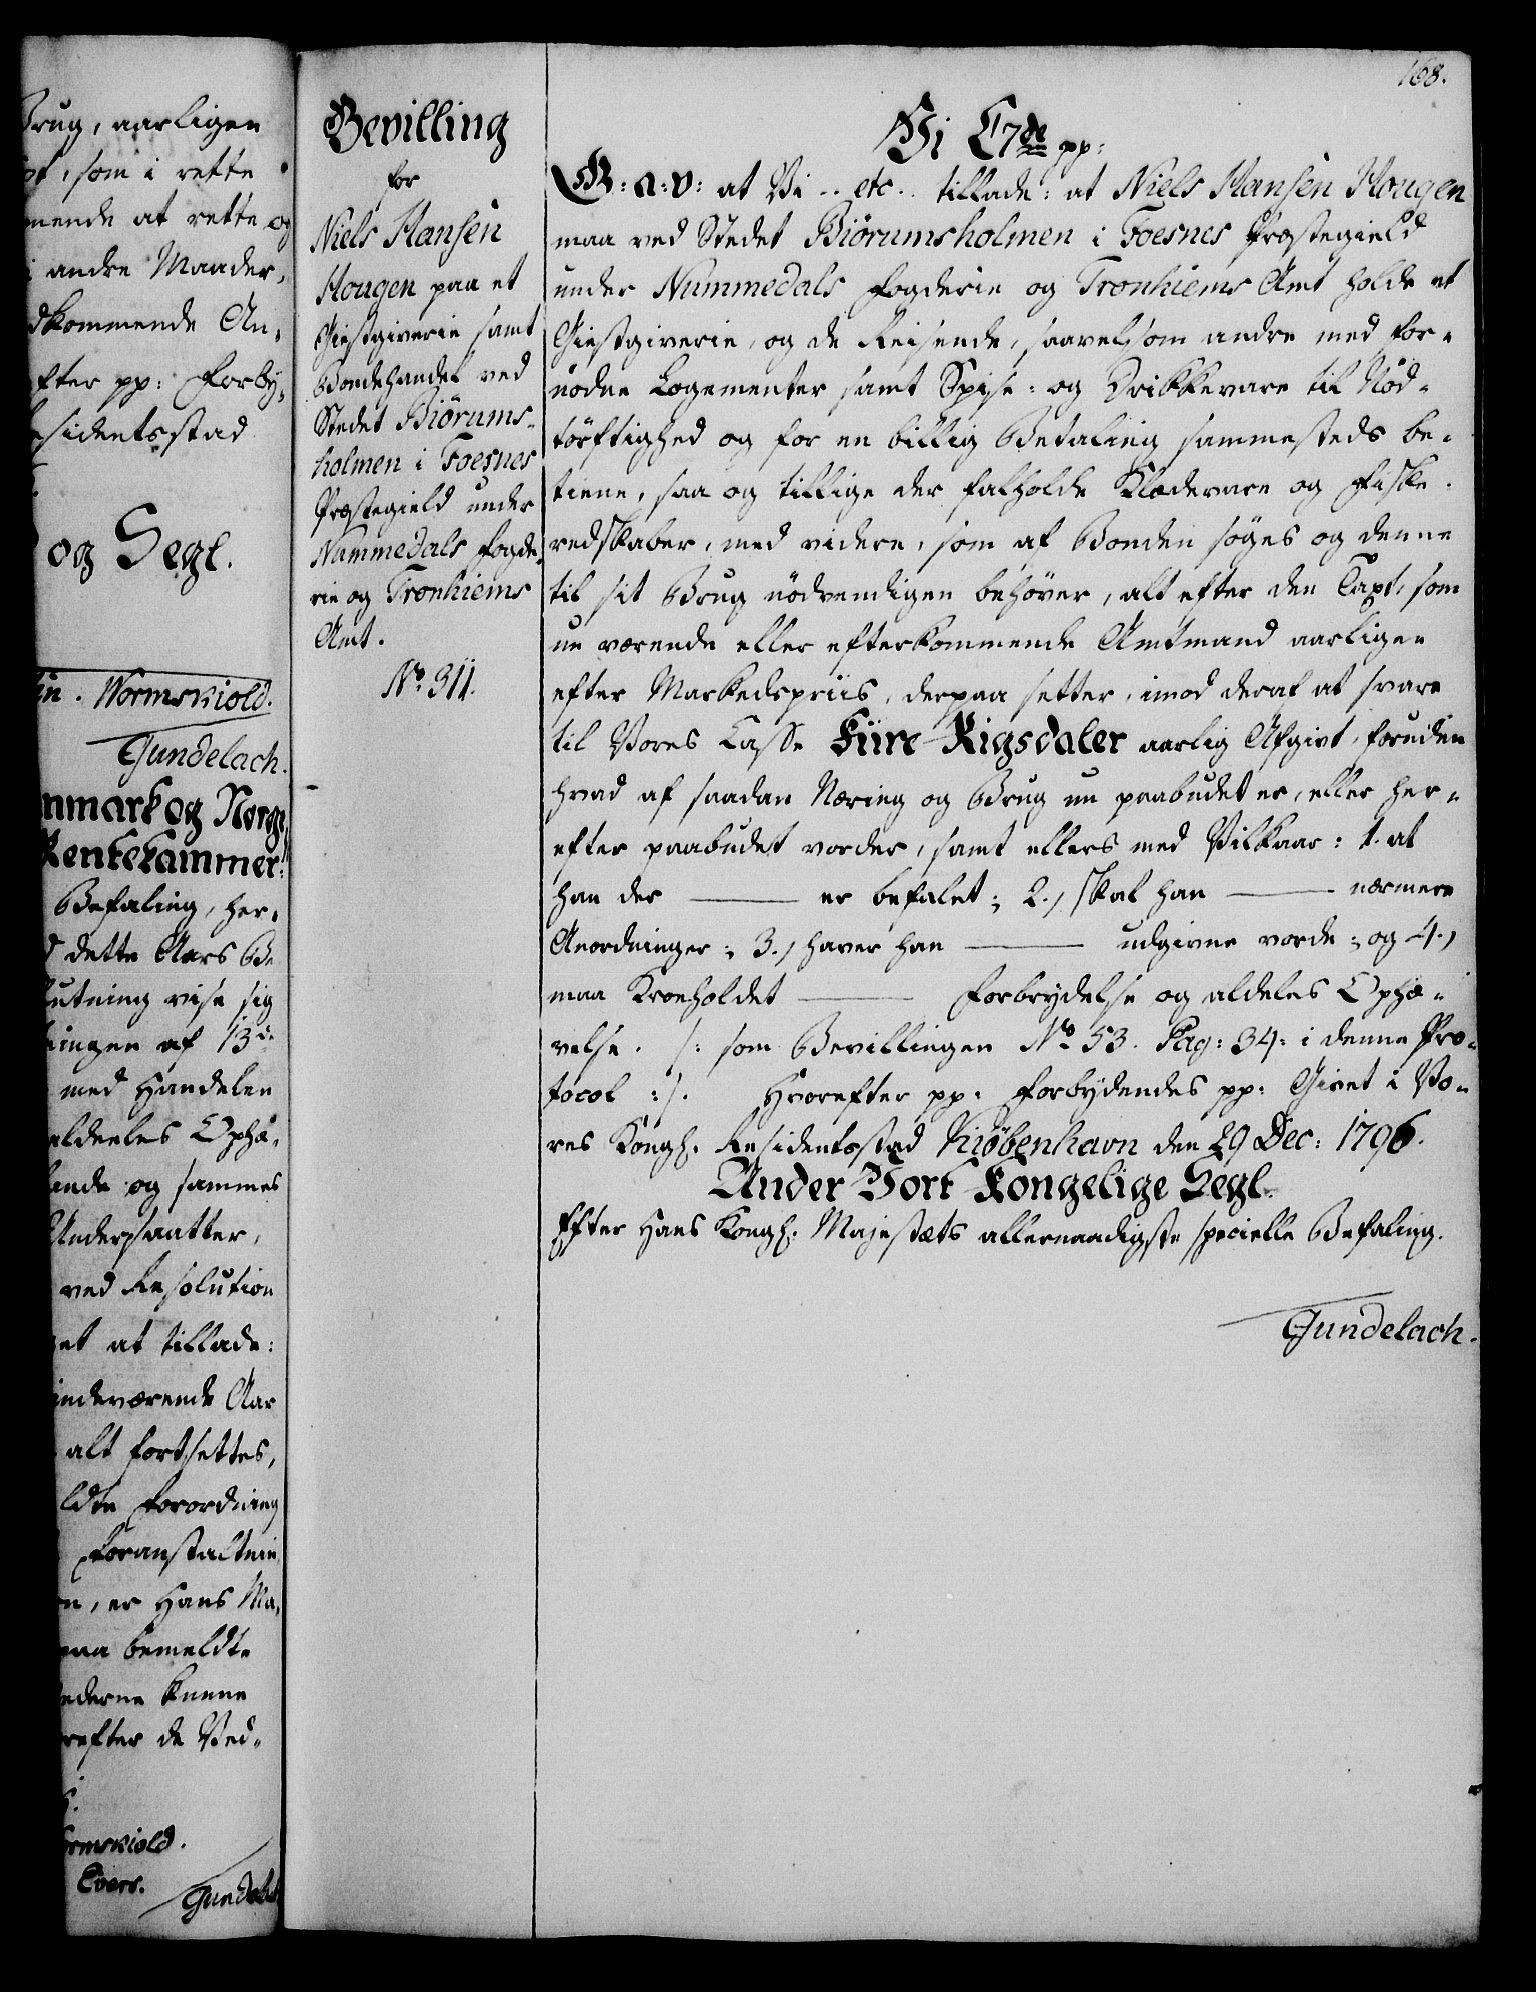 168.
Brug, aarligen
som i rette
mende at rette og
i andre Maader,
dkommende An-
fter pp: Forby-
sidentsstad
og Segl.
in. Wormskiold.
Gundelach.
nmark og Norge,
Rentekammer:
Befaling, her-
d dette Aars Be
lutning vise sig
ingen af 13de
med Handelen
aldeeles Ophæ-
ende og sammes
Undersaatter,
ved Resolution
et at tillade:
indeværende Aar
alt fortsettes,
ldte Forordning
Foranstaltnin
n, er Hans Ma,
paa bemeldte
ederne kunne
refter de Ved-
ormskiold.
Evers.
Gundelach
Bevilling
for
Niels Hansen
Hougen paa et
Giestgiverie samt
Bondehandel ved
Stedet Biörums-
holmen i Foesnes
Præstegield under
Nummedals Fogde-
rie og Tronhiems
Amt.
No. 311.
Vi C7de pp:
G: a: v: at Vi .. etc .. tillade: at Niels Hansen Hougen
maa ved Stedet Biörumsholmen i Foesnes Præstegield
under Nummedals Fogderie og Tronhiems Amt holde et
Giestgiverie, og de Reisende, saavelsom andre med for-
nödne Logementer samt Spise- og Drikkevare til Nöd-
törftighed og for en billig Betaling sammesteds be-
tiene, saa og tillige der falholde Klædevare og Fiske-
redskaber, med videre, som af Bonden söges og denne
til sit Brug nödvendigen behöver, alt efter den Taxt, som
nu værende eller efterkommende Amtmand aarligen
efter Markedspriis, derpaa setter, imod deraf at svare
til Vores Casse Fiire Rigsdaler aarlig Afgivt, foruden
hvad af saadan Næring og Brug nu paabudet er, eller her-
efter paabudet vorder, samt ellers med Vilkaar: 1. at
han der ——— er befalet; 2.) skal han ——— nærmere
Anordninger; 3.) haver han ——— udgivne vorde; og 4.)
maa Kroeholdet ——— Forbrydelse og aldeles Ophæ-
velse. /: som Bevillingen No 53. Pag: 34: i denne Pro-
tocol :/. Hvorefter pp: Forbydendes pp: Givet i Vo-
res Kongl. Residentsstad Kiöbenhavn den 29 Dec: 1796.
Under Vort Kongelige Segl.
Efter Hans Kongl. Majestæts allernaadigste specielle Befaling.
Gundelach.